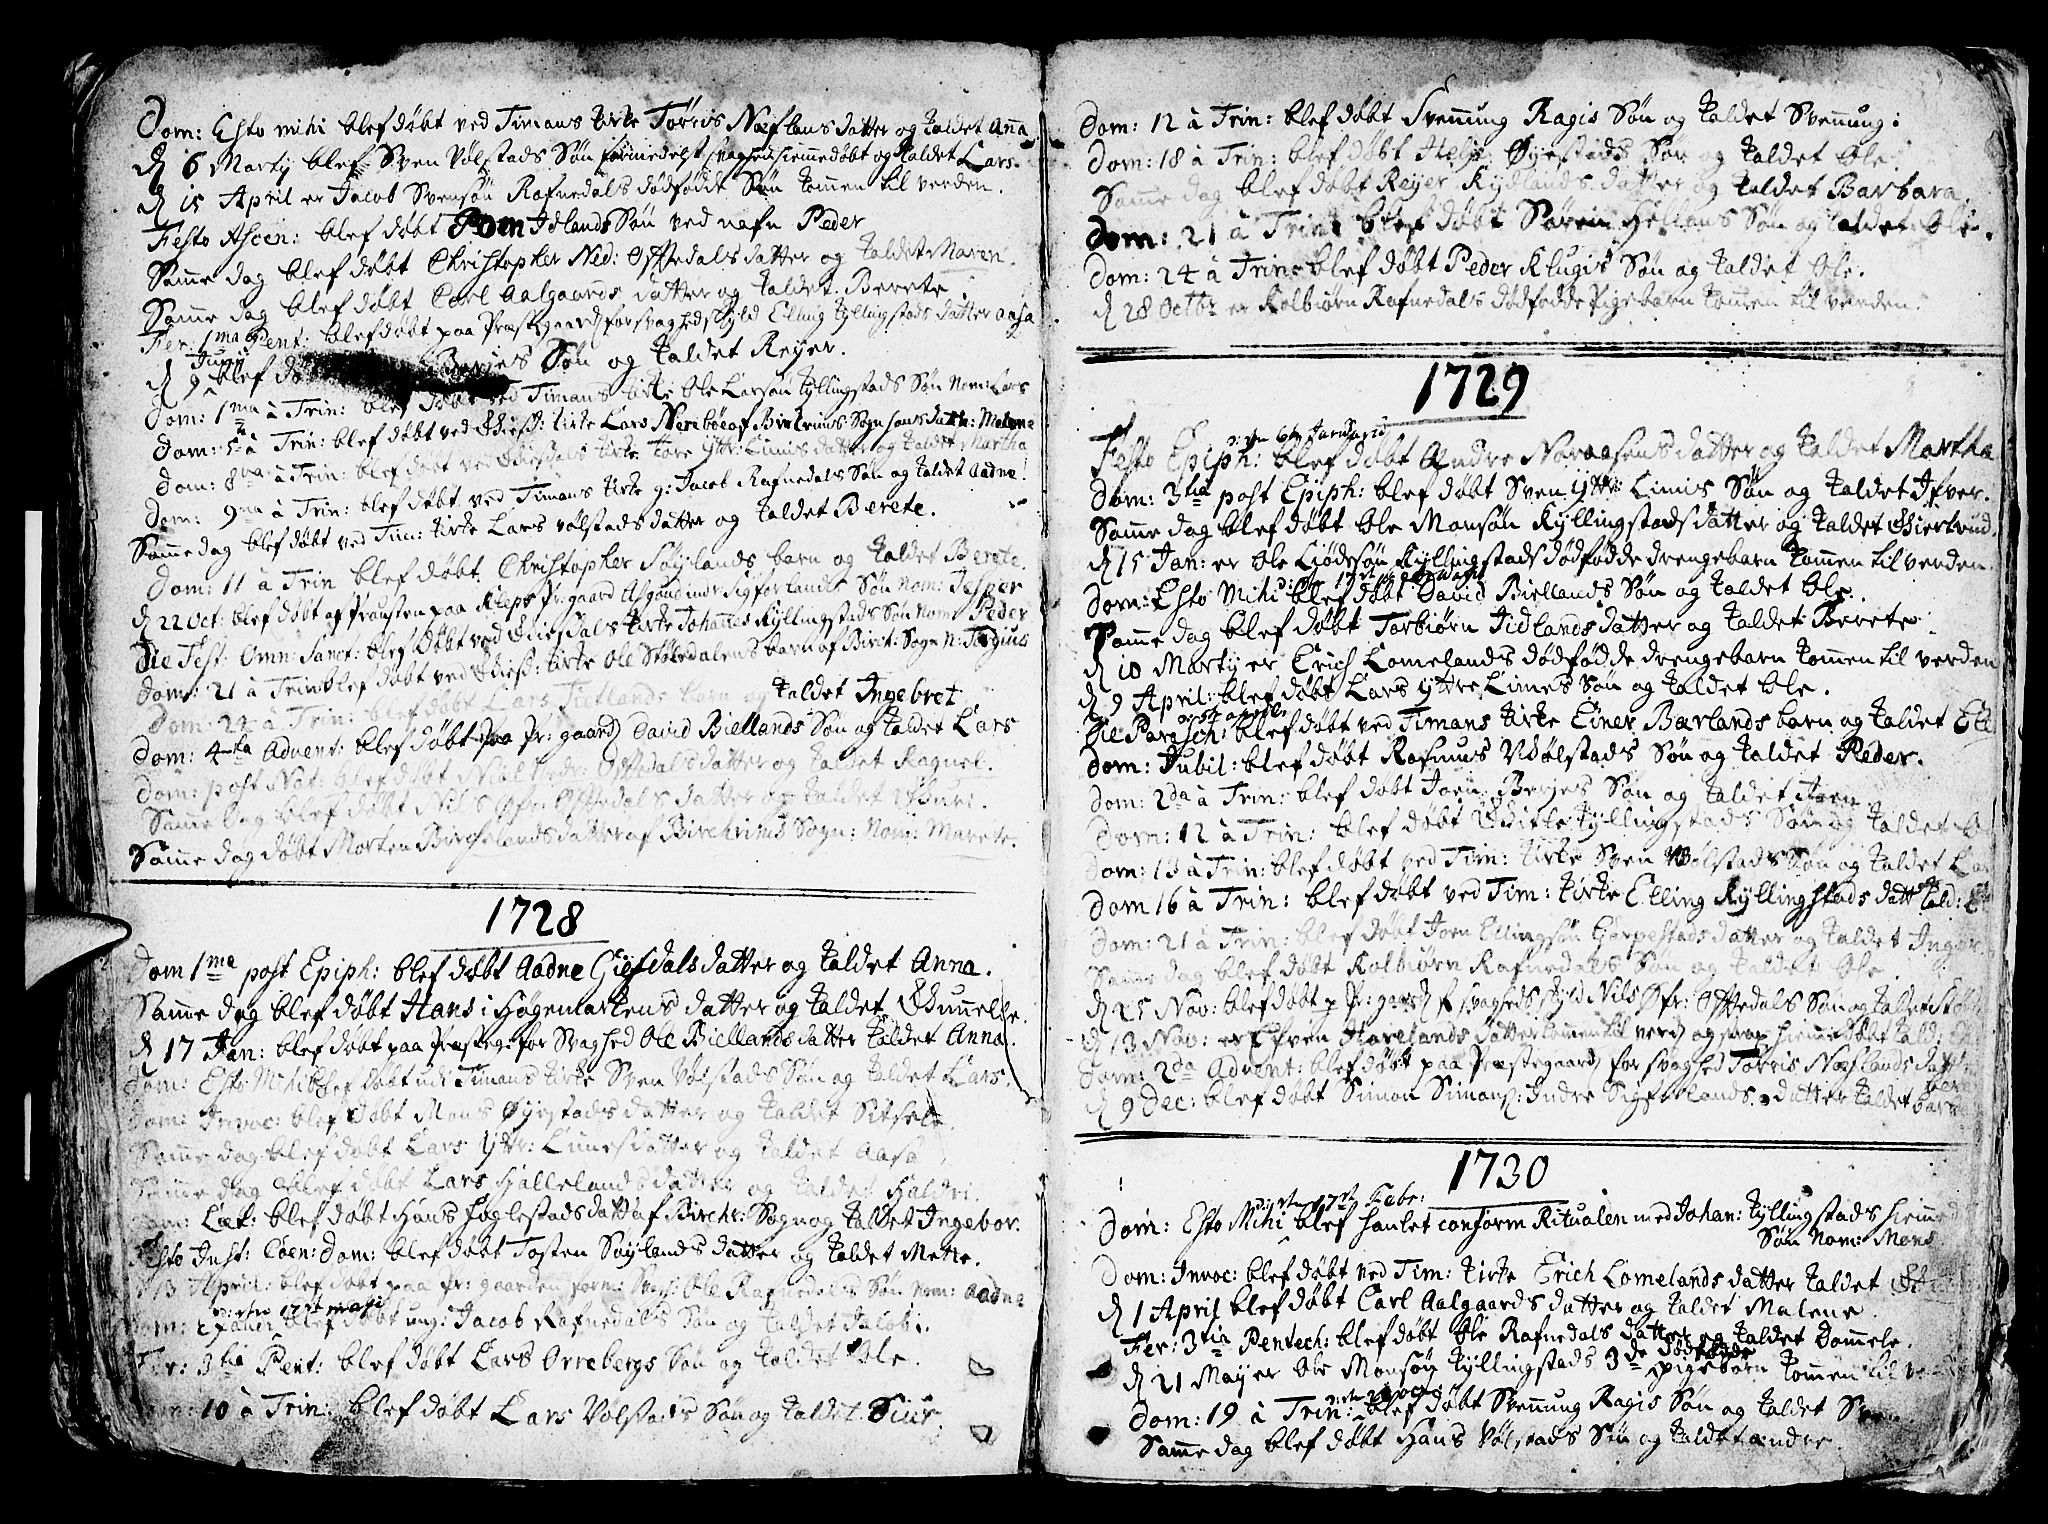 Dom: Esto mihi blef døbt ved Timans Kirke Tørris Næslans datter og kaldet Anna
d 6 Martij blef Sven Vølstads Søn formedelst svaghed hiemmedøbt og kaldet Lars.
d 15 April er Jacob Svensøn Rafnedals dødfødde Søn kommen til verden.
Festo Ascen: blef døbt Idlands Søn ved nafn Peder
Samme dag blef døbt Christopher Ned: Oftedals datter og kaldet Maren.
Samme dag blef døbt Carl Aalgaards datter og kaldet Berete
Fer: 1ma Pent: blef døbt paa Præstegaard for svagheds skyld Elling Kyllingstads datter Aasa
d 9 Junij blef Berjes Søn og kaldet Reyer.
Dom: 1ma à Trin: blef døbt ved Timans Kirke Ole Larsøn Kyllingstads Søn Nom: Lars
Dom: 5 à Trin: blef døbt ved Kirke Lars Neerbøe af Birkrims Sogn hans datter: Malene
Dom: 8va à Trin: blef døbt ved Giesdals Kirke Tore Yttr: Limis datter og kaldet Martha
Dom: 9na à Trin: blef døbt ved Timans Kirke g: Jacob Rafnedals Søn og kaldet Aadne.
Samme dag blef døbt ved Tim: Kirke Lars Vølstads datter og kaldet Berete.
Dom: 11 à Trin blef døbt Christopher Søylands barn og kaldet Berete.
d 22 Oct: blef døbt af Prousten paa Kleps Pr:gaard Asgoud indre Sigforlands Søn nom: Jesper
Die Fest: Omn: Sanct: blef døbt ved Giesdals Kirke Johannes Kyllingstads Søn Nom: Peder
Dom: 21 à Trin blef døbt ved Giesd: Kirke Ole Stølsdalens barn af Birk: Sogn N:
Dom: 24 à Trin: blef døbt Lars Fietlands barn og kaldet Ingebret
Dom: 4ta Advent: blef døbt paa Pr:gaard David Biellands Søn og kaldet Lars
Dom: post Nat: blef døbt Niel Nedr: Oftedals datter og kaldet Ragnel.
Samme dag blef døbt Nils Øfr: Oftedals datter og kaldet Guri.
Samme dag døbt Morten Birchelands datter af Birchrims Sogn: Nom: Marete.
1728
Dom 1ma post Epiph: blef døbt Aadne Giesdals datter og kaldet Anna.
Samme dag blef døbt Hans i Høgemarkens datter og kaldet Gunnelle.
d 17 Jan: blef døbt paa Præsteg: for Svaghed Ole Biellands datter kaldet Anna.
Dom: Esto Mihi blef døbt udi Timans Kirke Sven Vølstads Søn og kaldet Lars.
Dom: Invoc: blef døbt Mons Øyestads datter og kaldet Sitsele.
Samme dag blef døbt Lars Yttr: Limes datter og kaldet Aasa
Samme dag blef døbt Lars Hallelands datter og kaldet Haldri.
Dom: Læt: blef døbt Hans Foglestads datt af Birchr: Sogn og kaldet Ingebor.
Festo Inst: Coen: Dom: blef døbt Tosten Søylands datter og kaldet Mette.
d 13 April: blef døbt paa Pr:gaarden form: Svagh: Ole Rafnedals Søn nom: Aadne
Dom: blef døbt ung: Jacob Rafnedals Søn og kaldet Jacob.
Fer: 3tia Pent: blef døbt Lars Orrebergs Søn og kaldet Ole.
Dom: 10 à Trin: blef døbt Lars Vølstads Søn og kaldet Siur
Dom: 12 à Trin: blef døbt Svenung Ragis Søn og kaldet Svenung:
Dom: 18 à Trin: blef døbt Øyestads Søn og kaldet Ole
Samme dag blef døbt Reyer Kydlands datter og kaldet Barbara
Dom: 21 à Trin: blef døbt Søren Hellans Søn og kaldet Ole.
Dom: 24 à Trin: blef døbt Peder Klugis Søn og kaldet Ole.
d 28 Octbr er Kolbiørn Rafnedals dødfødde Pigebarn kommen til verden.
1729
Festo Epiph: den 6te Januarij blef døbt Andre Noraasens datter og kaldet Martha
Dom: 3tia post Epiph: blef døbt Sven Yttr: Limis Søn og kaldet Ifver.
Samme dag blef døbt Ole Monsøn Kyllingstads datter og kaldet Giertrud.
d 15 Jan: er Ole Liødesøn Kyllingstads dødfødde drengebarn kommen til verden
Dom: Esto Mihi blef døbt David Biellands Søn og kaldet Ole.
Samme dag blef døbt Torbiørn Jidlands datter og kaldet Berete
d 10 Martij er Erich Lomelands dødfødde drengebarn kommen til verden
d 9 April: blef døbt Lars Yttre Limes Søn og kaldet Ole.
Die Parasch: blef døbt ved Timans Kirke Einer Bærlands barn og kaldet Ell
Dom: Jubil: blef døbt Rasmus Vølstads Søn og kaldet Peder.
Dom: 2da à Trin: blef døbt Joen Berjes Søn og kaldet Joen
Dom: 12 à Trin: blef døbt Kyllingstads Søn og kaldet
Dom: 13 à Trin: blef døbt ved Tim: Kirke Sven Vølstads Søn og kaldet
Dom 16 à Trin: blef døbt ved Tim: Kirke Elling Kyllingstads datt kald:
Dom: 21 à Trin: blef døbt Joen Ellingsøn Gierpestads datter og kaldet Ingbr
Samme dag blef døbt Kolbiørn Rafnedals Søn og kaldet Ole
d 25 Nov: blef døbt p Pr:gaard f svagheds skyld Nils Øfr: Oftedals Søn og kaldet
d 13 Nov: er Efven Harelands datter kommen til verd og strax hiemmedøbt kald:
Dom: 2da Advent: blef døbt paa Præstegaard for svaghed Tørris Næslands datt
d 9 Dec: blef døbt Simon Simons: Indre Sigforlands datter kaldet
1730
Dom: Esto Mihi blef hanlet conform Ritualen med Johan: Kyllingstads hiemmed
Søn Nom: Mons
Dom: Invoc: blef døbt ved Tim: Kirke Erich Lomelands datter kaldet
d 1 April blef døbt Carl Aalgaards datter og kaldet Malene
Fer: 3tia Pentech: blef døbt Ole Rafnedals datter og kaldet Tommele.
d 21 Maij er Ole Monsøn Kyllingstads 3de dødfødde pigebarn kommen til
Dom: 19 à Trin: blef døbt Svenung Ragis Søn og kaldet Sven
Samme dag blef døbt Hans Vølstads Søn og kaldet andre.